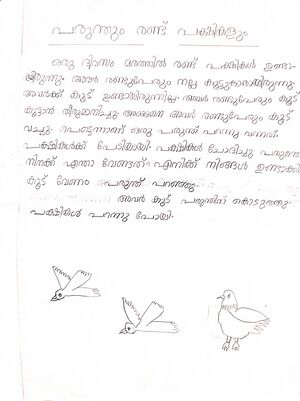 പരുന്തും രണ്ട് പക്ഷികളും
ഒരു ദിവസം മരത്തിൽ രണ്ട് പക്ഷികൾ ഉണ്ടാ-
യിരുന്നു. അവർ രണ്ടുപേരും നല്ല കൂട്ടുകാരായിരുന്നു.
അവർക്ക് കൂട് ഉണ്ടായിരുന്നില്ല. അവർ രണ്ടുപേരും കൂട്
കൂട്ടാൻ തീരുമാനിച്ചു. അങ്ങനെ അവർ രണ്ടുപേരും കൂട്
വച്ചു. പെട്ടെന്നാണ് ഒരു പരുന്ത് പറന്നു വന്നത്.
പക്ഷികൾക്ക് പേടിയായി. പക്ഷികൾ ചോദിച്ചു പരുന്തെ
നിനക്ക് എന്താ വേണ്ടത്? എനിക്ക് നിങ്ങൾ ഉണ്ടാക്കി
കൂട് വേണം പരുന്ത് പറഞ്ഞു.
അവർ കൂട് പരുന്തിന് കൊടുത്തു.
പക്ഷികൾ പറന്നു പോയി.